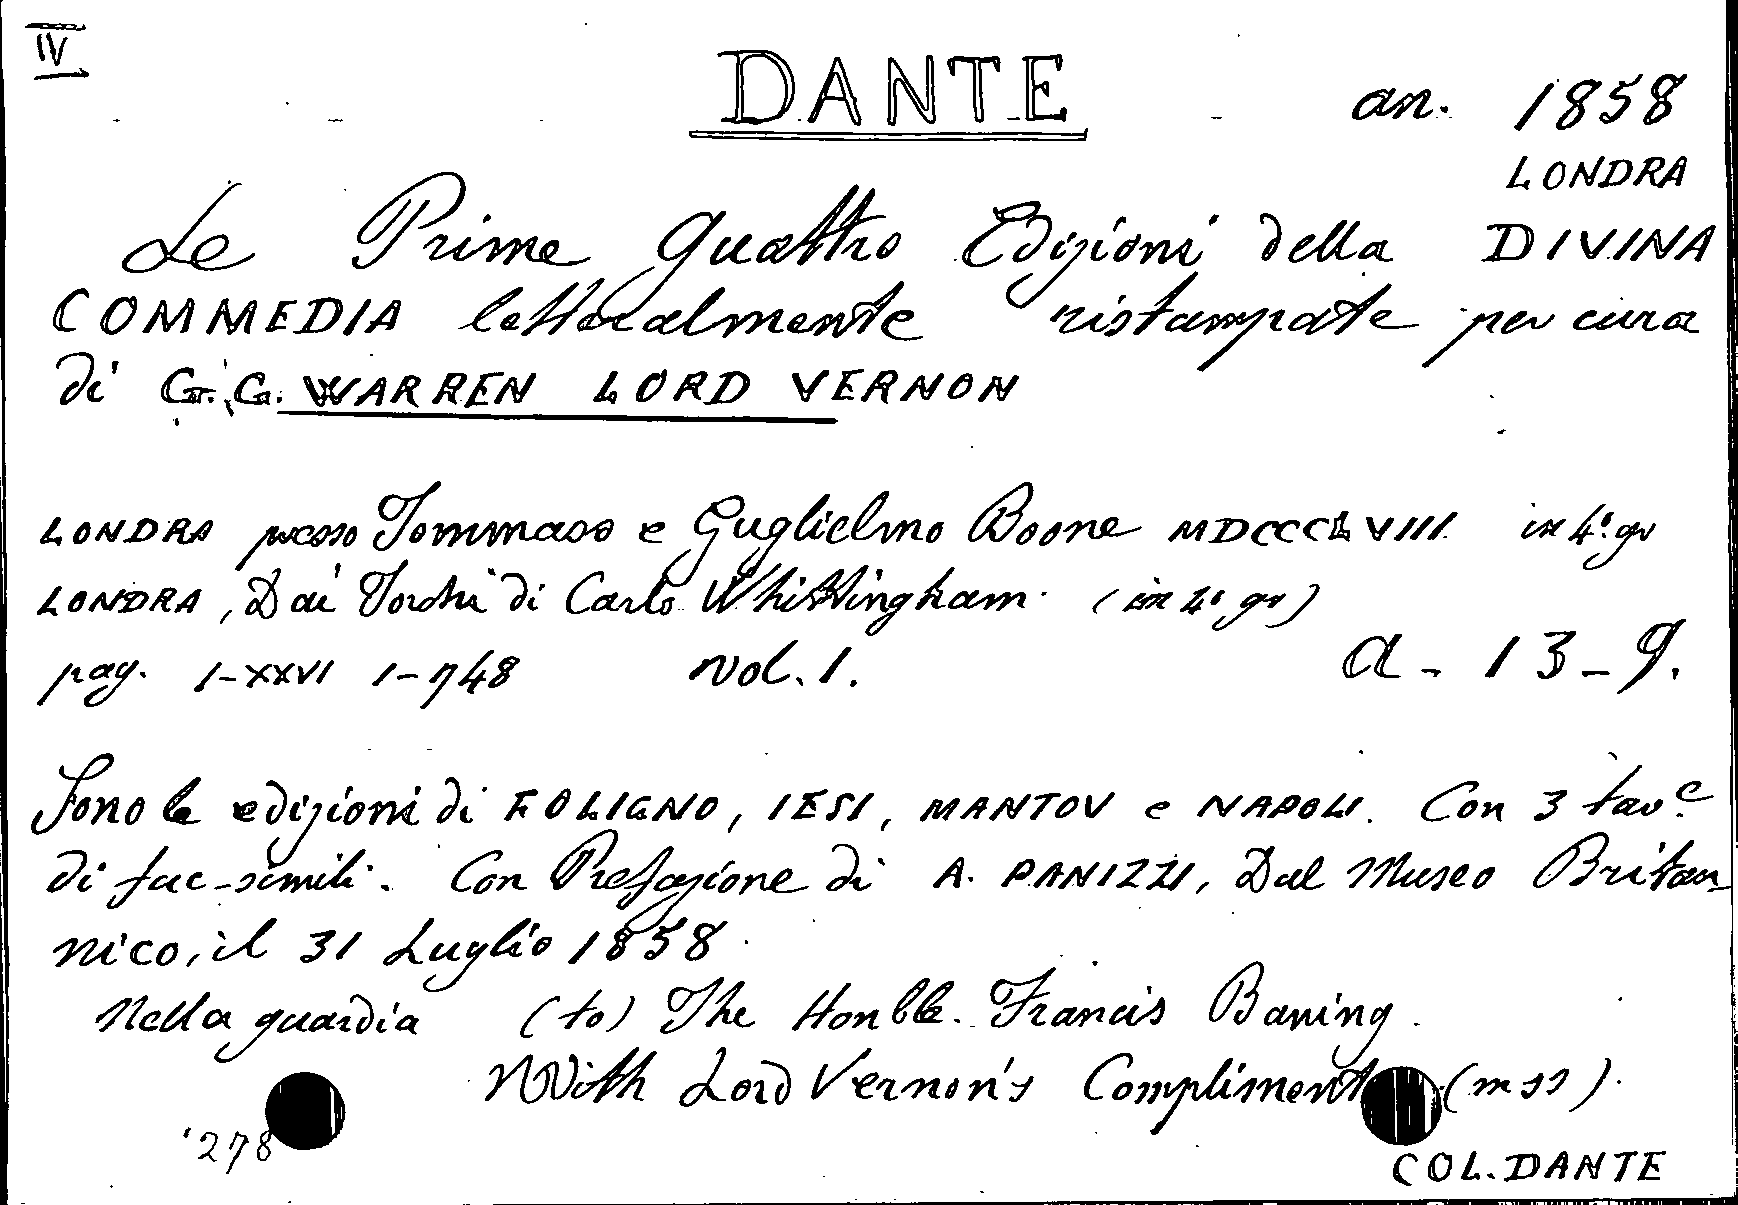 IV
DANTE
an. 1858
LONDRA
Le Prime Quattro Edizioni della DIVINA
COMMEDIA letteralmente ristampate per cura
di G. G. WARREN LORD VERNON
LONDRA presso Tommaso e Guglielmo Boone MDCCCLVIII in 4° gr
LONDRA, Dai Torchi di Carlo Whittingham (in 4° gr)
pag. I-XXVI 1-748 vol. 1. a - 13 - 9.
Sono le edizioni di FOLIGNO, IESI, MANTOV e NAPOLI. Con 3 tav.e
di fac-simili. Con Prefazione di A. PANIZZI, Dal Museo Britan
nico, il 31 Luglio 1858
Nella guardia (to) The Honble. Francis Baring
With Lord Vernon's Compliment (mss).
278
COL. DANTE